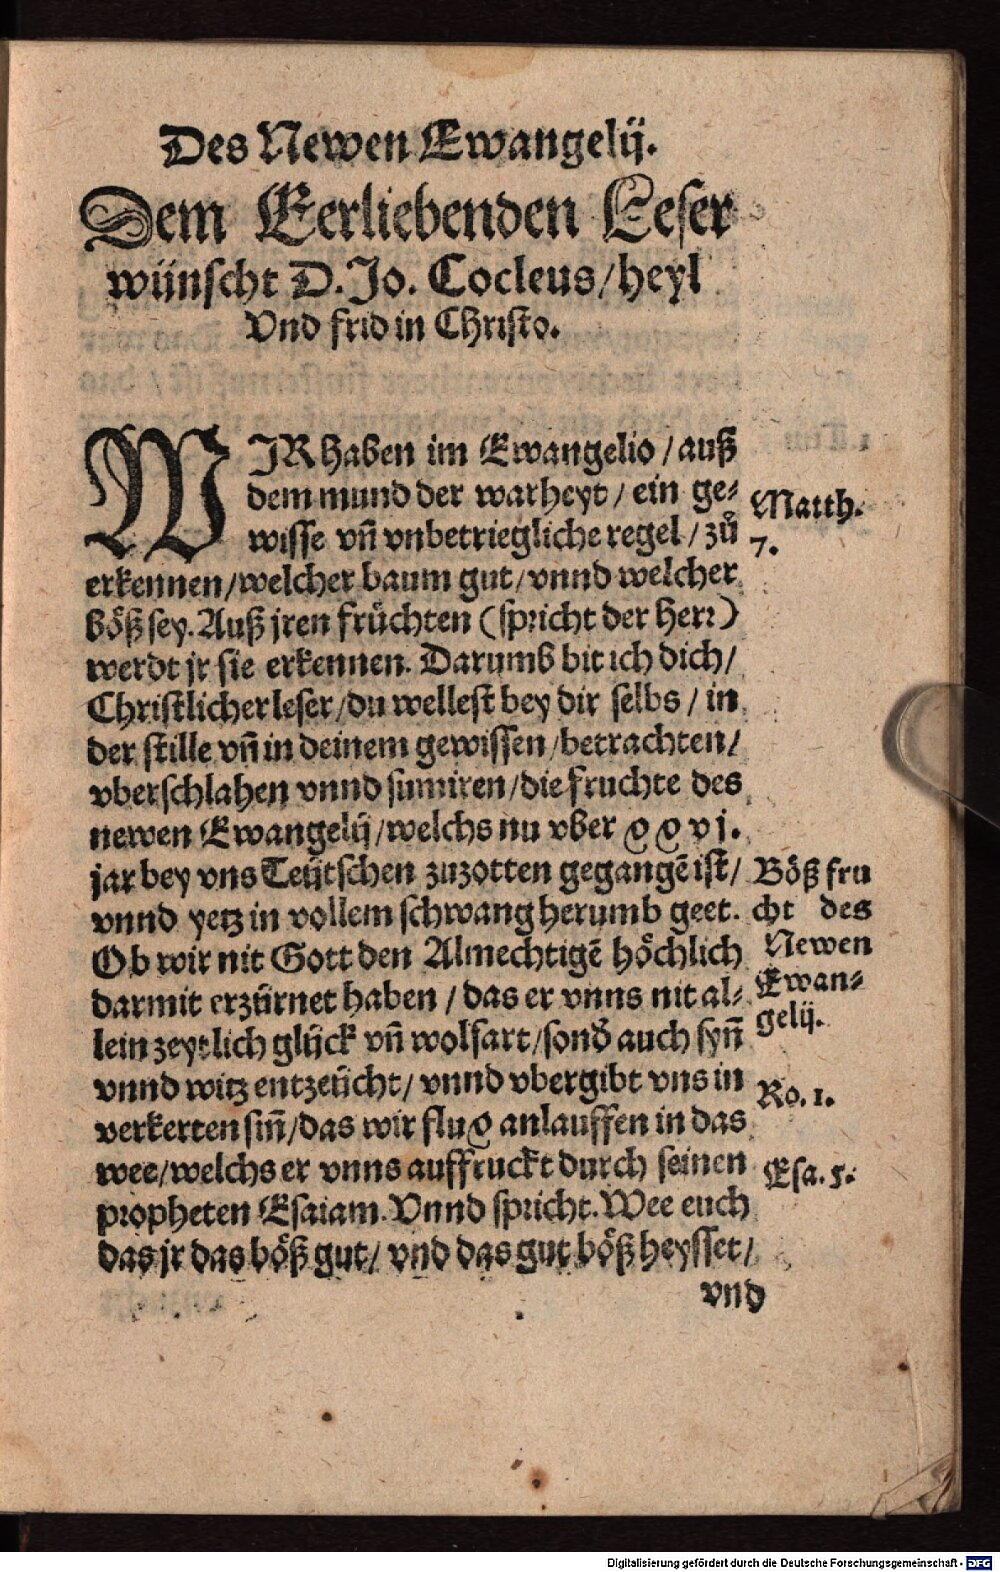 Des Newen Ewangelij.
Dem Eerliebenden Leser
wünscht D. Jo. Cocleus/heyl
Vnd frid in Christo.
WIR haben im Ewangelio / auß
dem mund der warheyt / ein ge-
wisse vñ vnbetriegliche regel / zů
erkennen/welcher baum gut/vnnd welcher
böß sey. Auß jren früchten (spricht der Herr)
werdt jr sie erkennen. Darumb bit ich dich/
Christlicher leser/du wellest bey dir selbs / in
der stille vñ in deinem gewissen/betrachten/
vberschlahen vnnd sumiren/die fruchte des
newen Ewangelij/welchs nu vber xxvj.
jar bey vns Teütschen zuzotten gegangẽ ist/
vnnd yetz in vollem schwang herumb geet.
Ob wir nit Gott den Almechtigẽ höchlich
darmit erzürnet haben / das er vnns nit al-
lein zeytlich glück vñ wolfart/sonð auch syñ
vnnd witz entzeücht/ vnnd vbergibt vns in
verkerten siñ/das wir flux anlauffen in das
wee/welchs er vnns auffruckt durch seinen
propheten Esaiam. Vnnd spricht. Wee euch
das jr das böß gut/ vnd das gut böß heysset/
vnd
Matth.
7.
Böß fru
cht des
Newen
Ewan-
gelij.
Ro. 1.
Esa. 5.
1 Tim
Digitalisierung gefördert durch die Deutsche Forschungsgemeinschaft - DFG